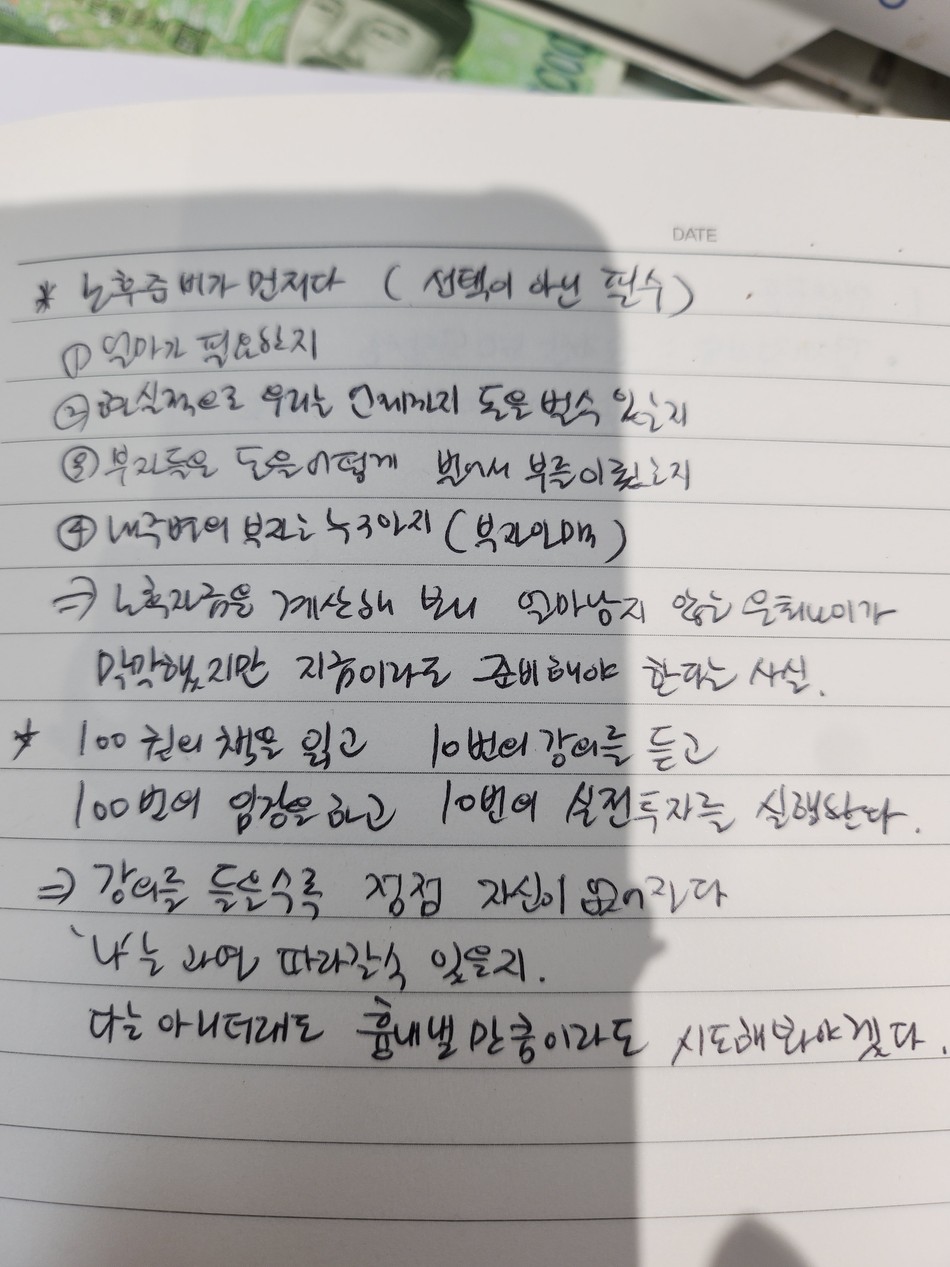 DATE
* 노후준비가 먼저다 ( 선택이 아닌 필수 )
① 얼마가 필요한지
② 현실적으로 우리는 언제까지 돈을 벌수 있는지
③ 부자들은 돈을 어떻게 벌어서 부를 이뤘는지
④ 내주변의 부자는 누구인지 ( 부자인맥 )
⇒ 노후자금을 계산해 보니 얼마남지 않은 은퇴나이가
막막했지만 지금이라도 준비해야 한다는 사실.
* 100권의 책을 읽고 10번의 강의를 듣고
100번의 임장을 하고 10번의 실전투자를 실행한다.
⇒ 강의를 들을수록 점점 자신이 없어진다
나는 과연 따라갈수 있을지.
다는 아니더래도 흉내낼 만큼이라도 시도해봐야겠다.